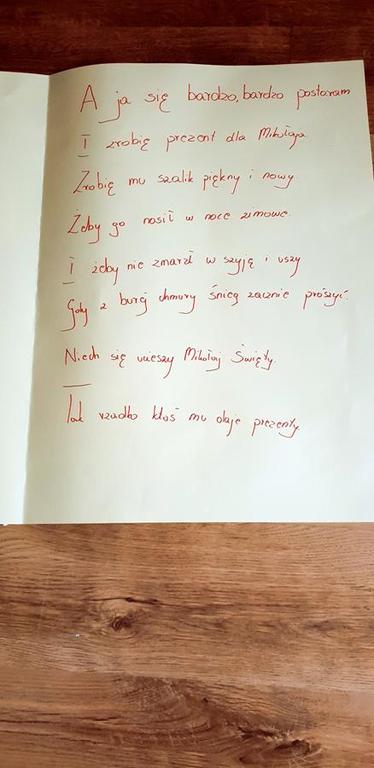 A ja się bardzo, bardzo postaram
I zrobię prezent dla Mikołaja
Zrobię mu szalik piękny i nowy
Żeby go nosił w noce zimowe.
I żeby nie zmarzł w szyję i uszy
Gdy z burej chmury śnieg zacznie prószyć.
Niech się ucieszy Mikołaj Święty.
Tak rzadko ktoś mu daje prezenty.